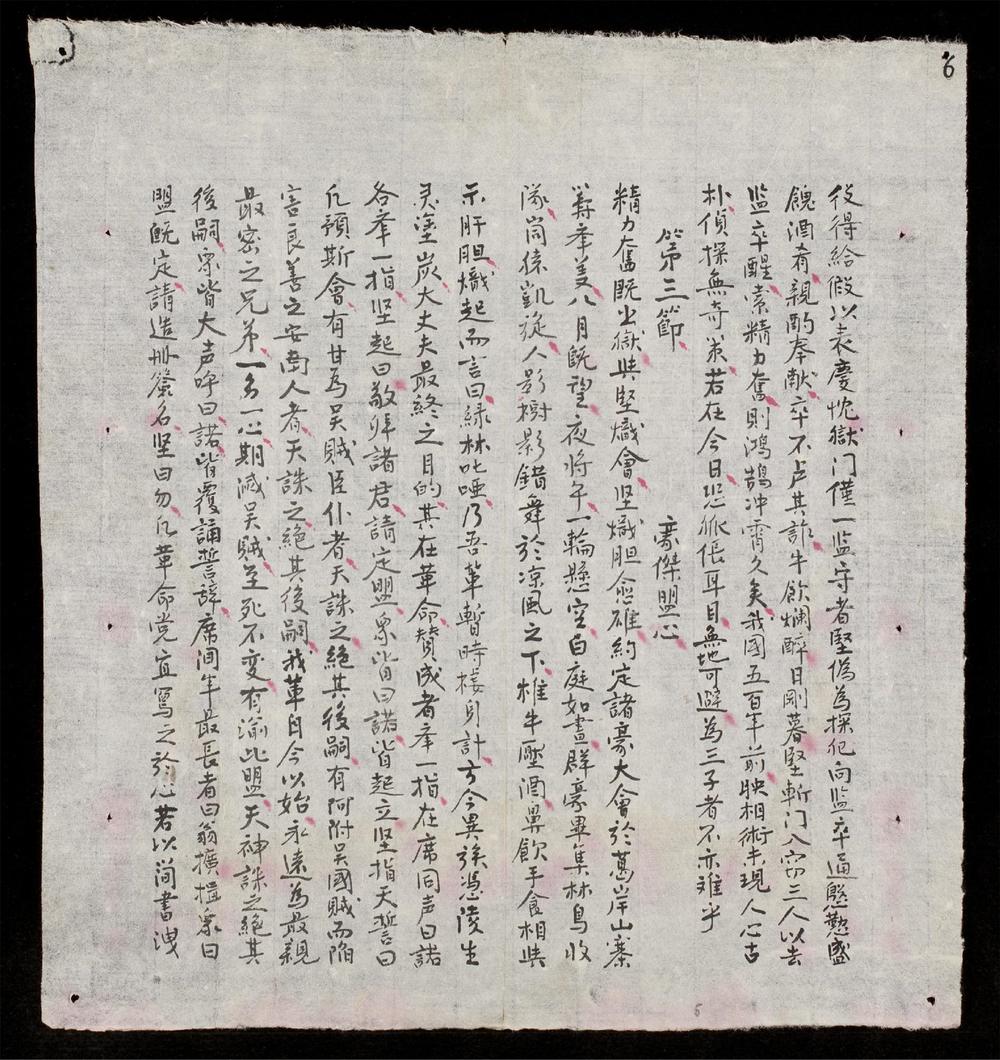 6
役得給假以表慶忱獄门僅一监守者堅偽為探犯向监卒通慇懃盛
餽酒肴親酌奉献卒不占其詐牛飲爛醉日剛暮堅斬门入窃三人以去
监卒醒索精力奮則鴻鵠冲霄久矣我國五百年前映相術未現人心古
朴偵探無奇策若在今日恐派伥耳目無地可避為三子者不亦难乎
第三節 豪傑盟心
精力奮既出獄與堅熾會坚熾胆愈雄約定諸豪大會於葛岸山寨
筭奉姜八月既望夜将午一輪懸空白庭如晝群豪畢集林鳥收
隊崗猿凱旋人影樹影錯舞於凉風之下椎牛壓酒鼻飲手食相與
示肝胆熾起而言曰緑林叱唾乃吾軰暫時棲身計方今異族憑陵生
灵塗炭大丈夫最終之目的其在革命賛成者奉一指在席同声曰諾
各奉一指坚起曰敬拜諸君請定盟眾皆曰諾皆起立坚指天誓曰
凡預斯會有甘為吴賊臣仆者天誅之絕其後嗣有阿附吴國賊而陥
害良善之安南人者天誅之絕其後嗣我軰自今以始永遠為最親
最密之兄弟一多一心期滅吴賊至死不变有渝此盟天神誅之絕其
後嗣眾皆大声呼曰諾皆覆誦誓辞席间年最長者曰翁擴揖眾曰
盟既定請造册簽名坚曰勿凡革命党宜寫之於心若以简書洩
6